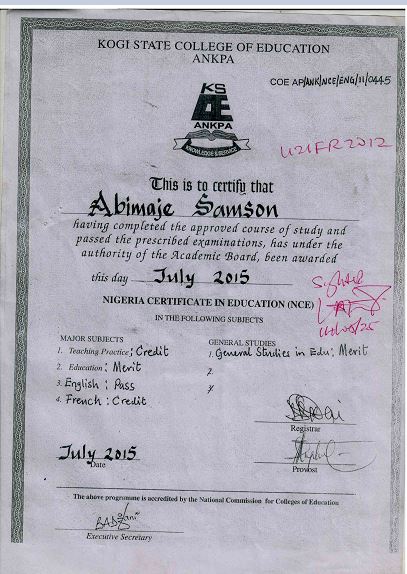 KOGI STATE COLLEGE OF EDUCATION
ANKPA
COE AP/ANK/NCE/ENG/11/0445
KS
COE
ANKPA
KNOWLEDGE & SERVICE
U21FR2012
This is to certify that
Abimaje Samson
having completed the approved course of study and
passed the prescribed examinations, has under the
authority of the Academic Board, been awarded
this day July 2015
Sighted
NIGERIA CERTIFICATE IN EDUCATION (NCE)
IN THE FOLLOWING SUBJECTS
MAJOR SUBJECTS
1. Teaching Practice; Credit
2. Education : Merit
3. English : Pass
4. French : Credit
GENERAL STUDIES
1. General Studies in Edu: Merit
2.
3.
Registrar
July 2015
Date
Provost
The above programme is accredited by the National Commission for Colleges of Education
Executive Secretary